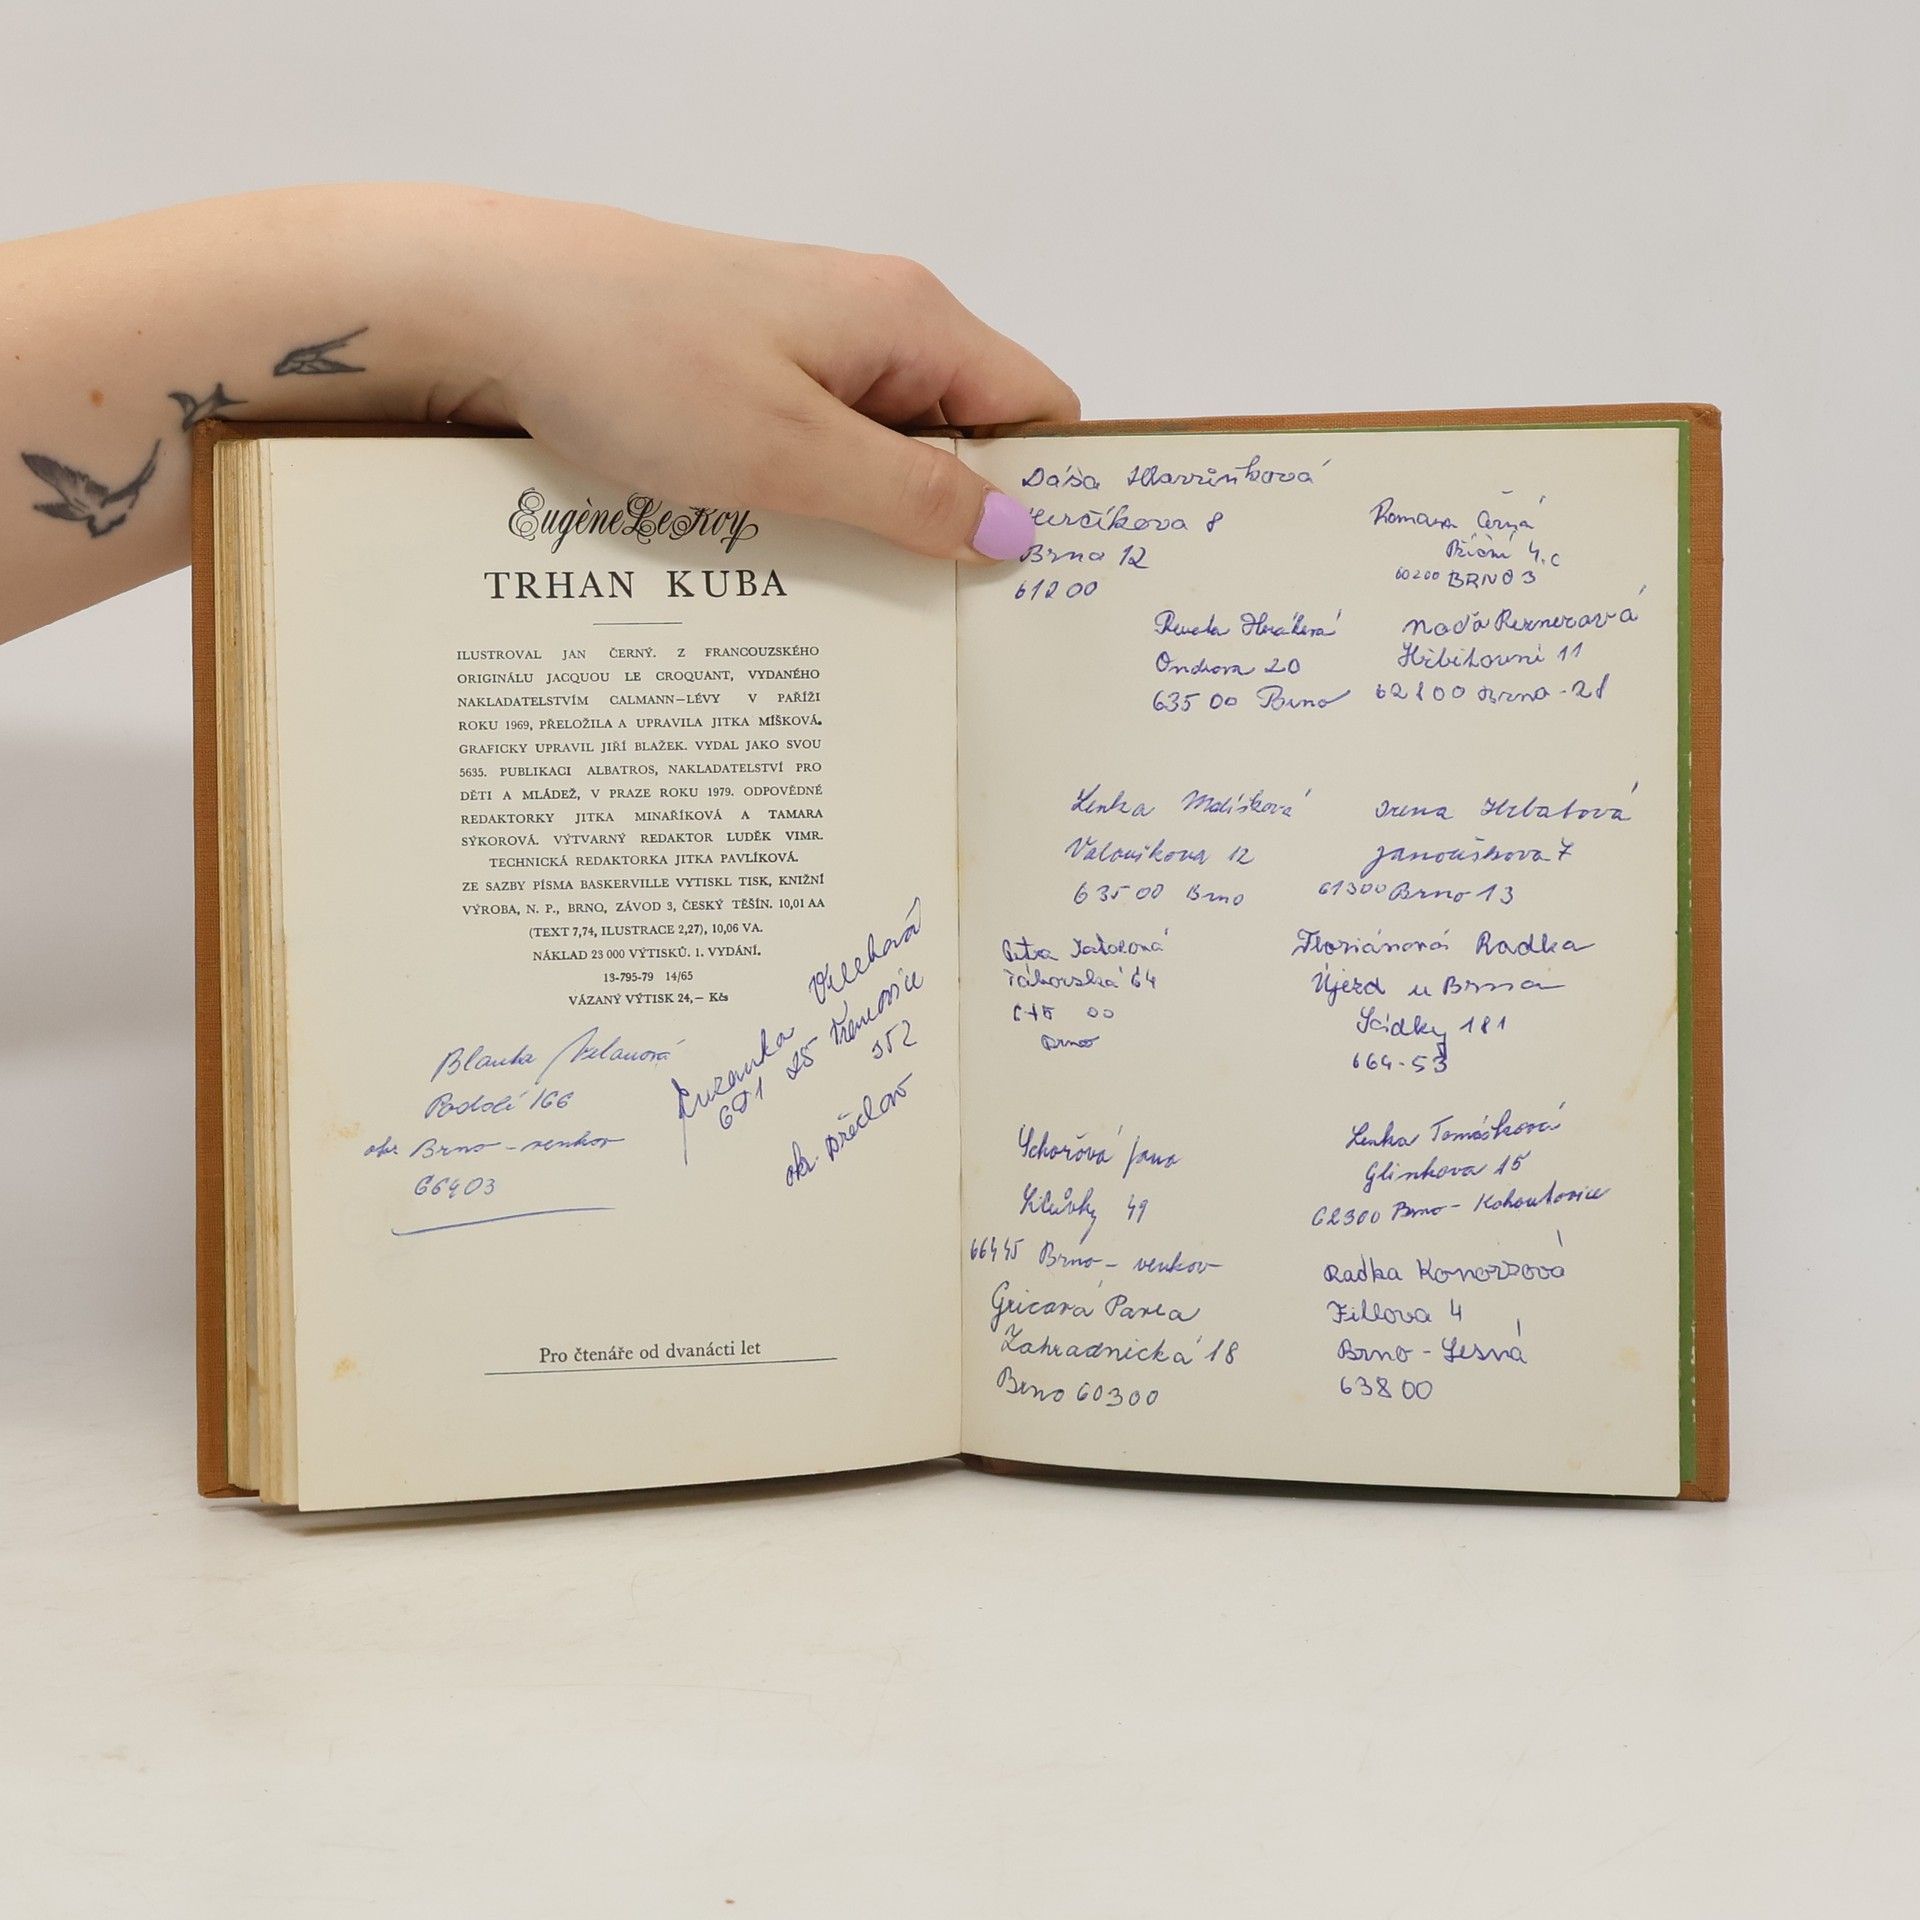 Eugène Le Roy
TRHAN KUBA
ILUSTROVAL JAN ČERNÝ. Z FRANCOUZSKÉHO
ORIGINÁLU JACQUOU LE CROQUANT, VYDANÉHO
NAKLADATELSTVÍM CALMANN–LÉVY V PAŘÍŽI
ROKU 1969, PŘELOŽILA A UPRAVILA JITKA MÍŠKOVÁ.
GRAFICKY UPRAVIL JIŘÍ BLAŽEK. VYDAL JAKO SVOU
5635. PUBLIKACI ALBATROS, NAKLADATELSTVÍ PRO
DĚTI A MLÁDEŽ, V PRAZE ROKU 1979. ODPOVĚDNÉ
REDAKTORKY JITKA MINAŘÍKOVÁ A TAMARA
SÝKOROVÁ. VÝTVARNÝ REDAKTOR LUDĚK VIMR.
TECHNICKÁ REDAKTORKA JITKA PAVLÍKOVÁ.
ZE SAZBY PÍSMA BASKERVILLE VYTISKL TISK, KNIŽNÍ
VÝROBA, N. P., BRNO, ZÁVOD 3, ČESKÝ TĚŠÍN. 10,01 AA
(TEXT 7,74, ILUSTRACE 2,27), 10,06 VA.
NÁKLAD 23 000 VÝTISKŮ. 1. VYDÁNÍ.
13-795-79 14/65
VÁZANÝ VÝTISK 24,– Kčs
Blanka
Podolí 166
okr. Brno – venkov
66403
Zuzanka Vlechová
691 25 Vranovice
352
okr. Břeclav
Pro čtenáře od dvanácti let
Dáša
Herčíkova 8
Brno 12
61200
Romana Černá
Příční 4.c
60200 BRNO 3
Renata
Ondrova 20
635 00 Brno
Naďa Rernerová
Hřbitovní 11
62800 Brno - 28
Lenka Mališková
Valouškova 12
635 00 Brno
Irena Hrbatová
Janouškova 7
61300 Brno 13
Petra
Táborská 64
615 00
Brno
Floriánová Radka
Újezd u Brna
Sídky 181
664-53
Schořová Jana
Silůvky 49
66445 Brno – venkov
Gricová Pavla
Zahradnická 18
Brno 60300
Lenka Tomášková
Glinkova 15
62300 Brno – Kohoutovice
Radka Konorzová
Fillova 4
Brno – Lesná
63800